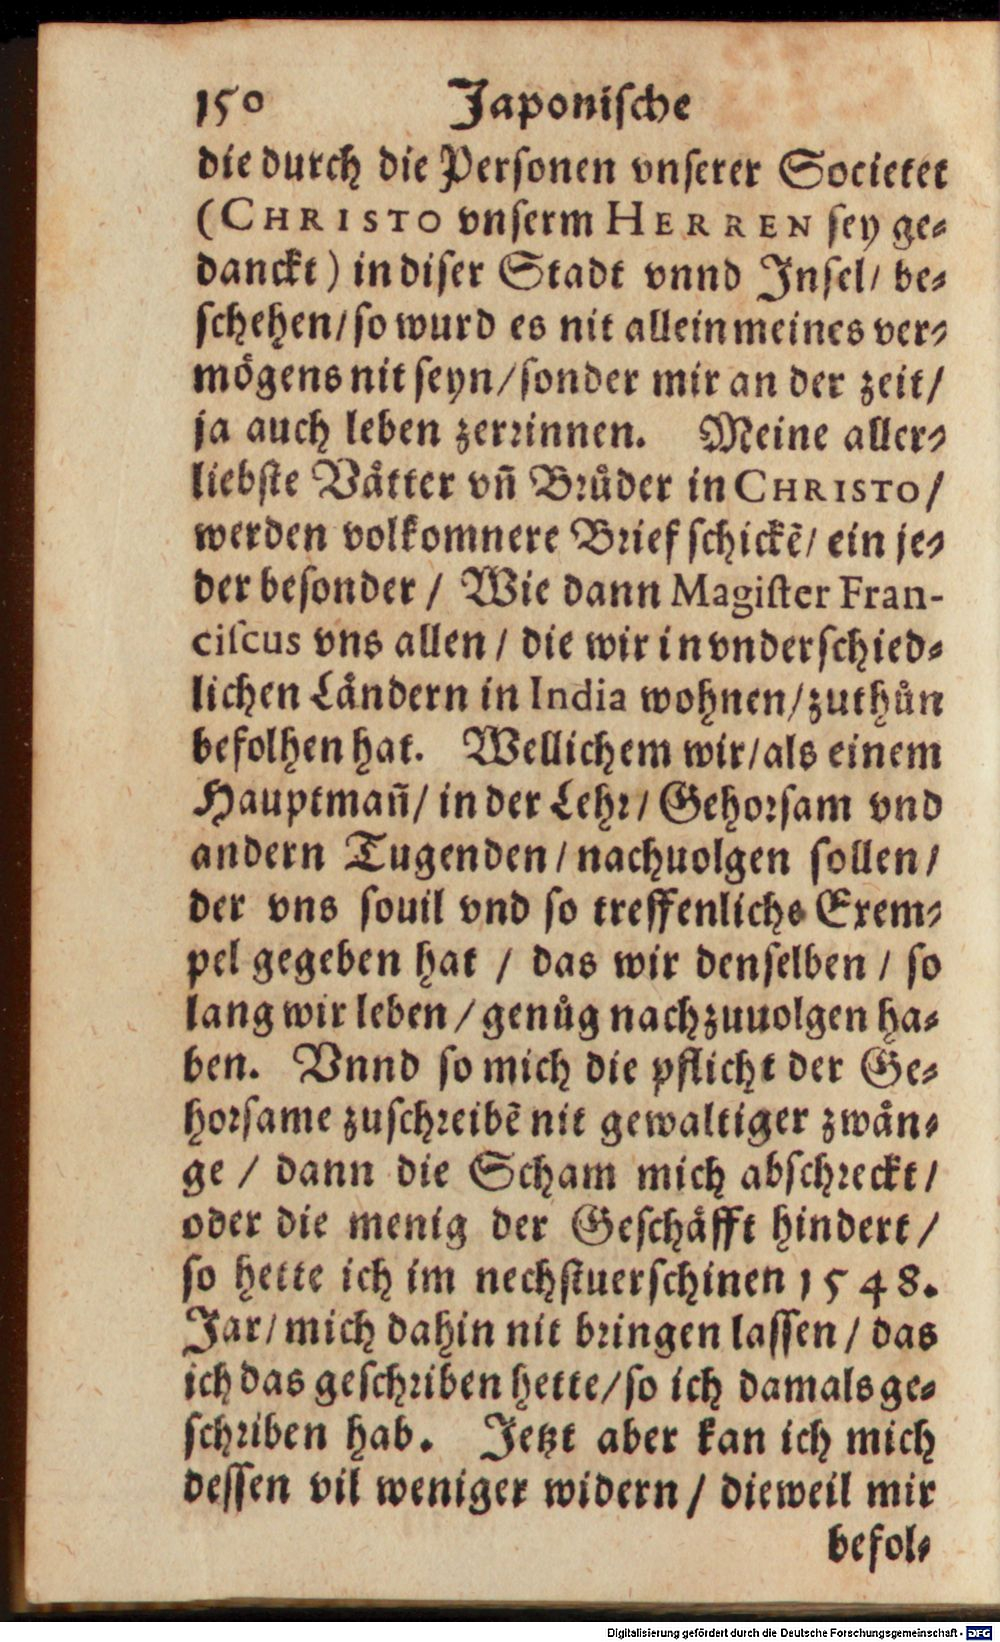 150 Japonische
die durch die Personen vnserer Societet
(CHRISTO vnserm HERREN sey ge⸗
danckt) in diser Stadt vnnd Insel/ be⸗
schehen/ so wurd es nit allein meines ver⸗
mögens nit seyn/ sonder mir an der zeit/
ja auch leben zerrinnen. Meine aller⸗
liebste Vätter vñ Brůder in CHRISTO/
werden volkomnere Brief schickẽ/ ein je⸗
der besonder / Wie dann Magister Fran-
ciscus vns allen / die wir in vnderschied⸗
lichen Ländern in India wohnen/ zuthůn
befolhen hat. Wellichem wir/ als einem
Hauptmañ/ in der Lehr/ Gehorsam vnd
andern Tugenden/ nachuolgen sollen/
der vns souil vnd so treffenlichs Exem⸗
pel gegeben hat / das wir denselben / so
lang wir leben / genůg nachzuuolgen ha⸗
ben. Vnnd so mich die pflicht der Ge⸗
horsame zuschreibẽ nit gewaltiger zwän⸗
ge / dann die Scham mich abschreckt/
oder die menig der Geschäfft hindert/
so hette ich im nechstuerschinen 1548.
Jar/ mich dahin nit bringen lassen / das
ich das geschriben hette/ so ich damals ge⸗
schriben hab. Jetzt aber kan ich mich
dessen vil weniger widern / dieweil mir
befol⸗
Digitalisierung gefördert durch die Deutsche Forschungsgemeinschaft - DFG